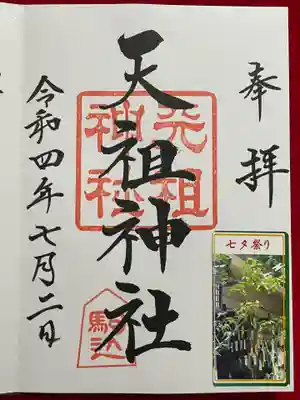 奉拝
天祖神社
天祖神社
駒込
令和四年七月二日
七夕祭り